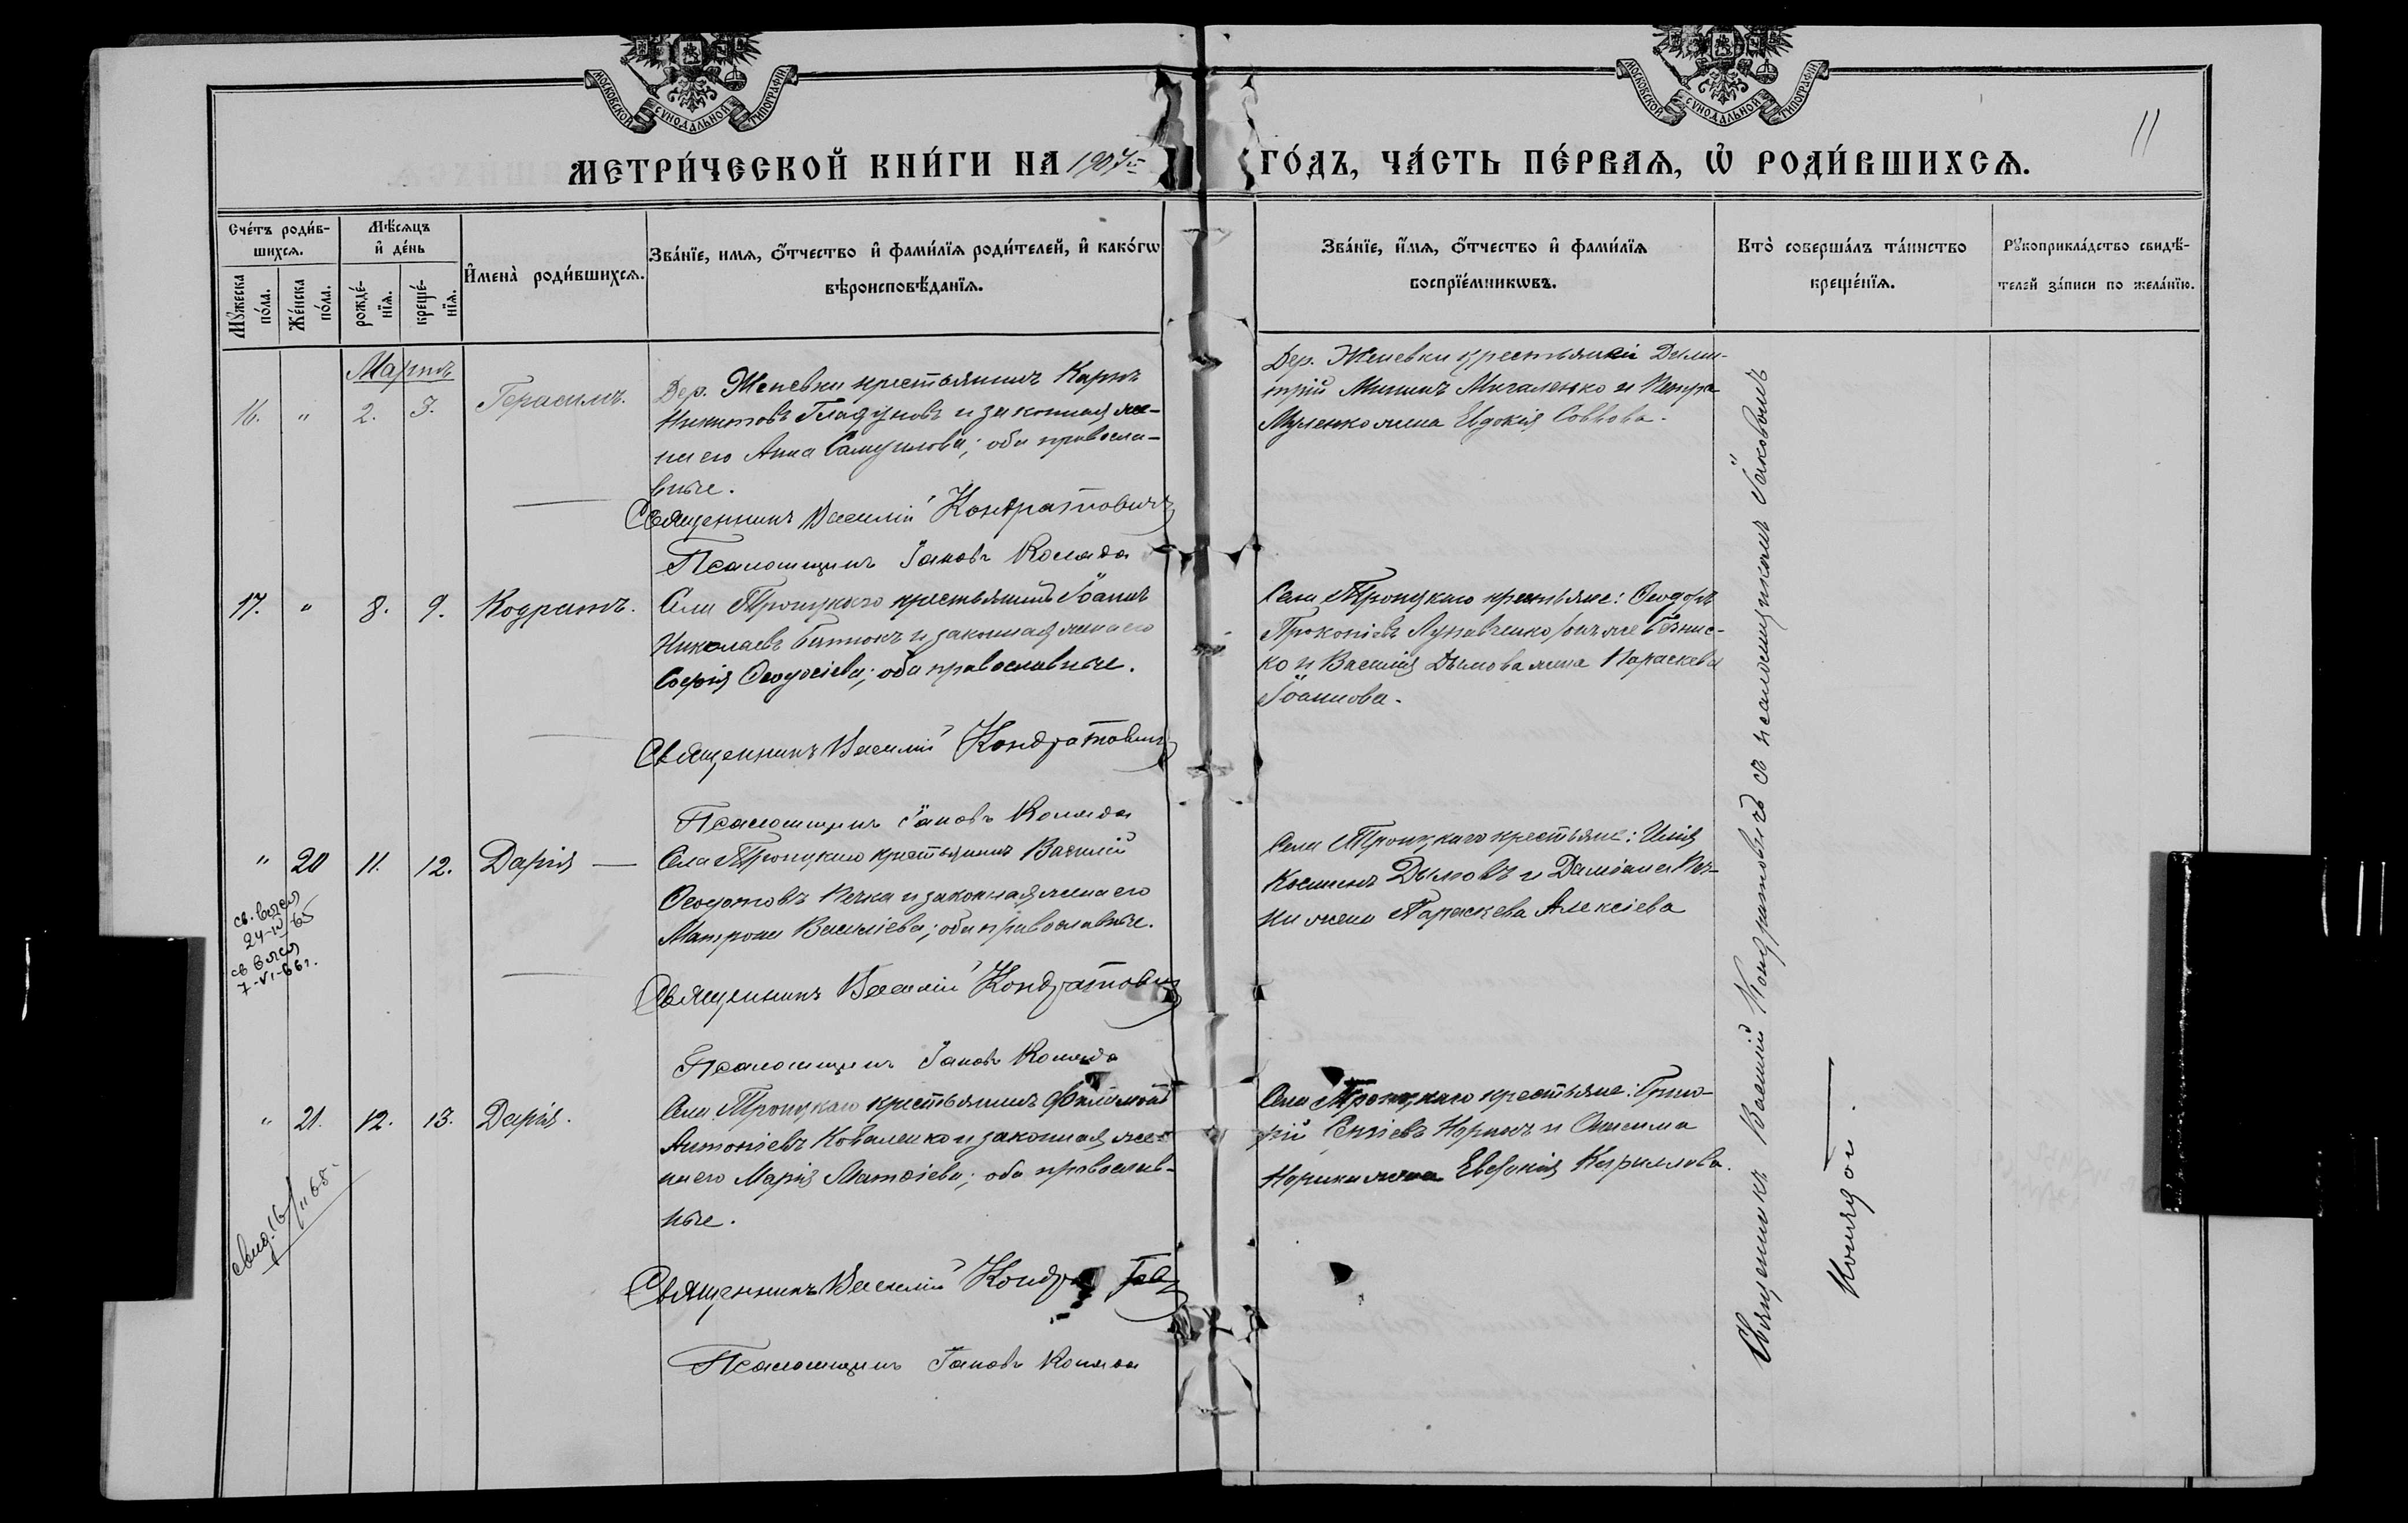 МОСКОВСКОЙ СѴНОДАЛЬНОЙ ТИПОГРАФІИ
МОСКОВСКОЙ СѴНОДАЛЬНОЙ ТИПОГРАФІИ
11
МЕТРИ́ЧЕСКОЙ КНИ́ГИ НА 1907й ГО́ДЪ, ЧА́СТЬ ПЕ́РВАѦ, Ѡ҆ РОДИ́ВШИХСѦ.
Сче́тъ роди́в-
шихсѧ.
Мꙋжеска по́ла.
Же́нска по́ла.
Мѣ́сѧцъ и҆ де́нь
рожде́-
нїѧ.
креще́-
нїѧ.
И҆мена̀ роди́вшихсѧ.
Зва́нїе, имѧ, ѻ҆́тчество и҆ фами́лїѧ роди́телей, и҆ како́гѡ
вѣроисповѣ́данїѧ.
Зва́нїе, и҆́мѧ, ѻ҆́тчество и҆ фами́лїѧ
воспрїе́мникѡвъ.
Кто̀ соверша́лъ та́инство
креще́нїѧ.
Рꙋкоприкла́дство свидѣ́-
телей за́писи по жела́нїю.
Мартъ
16. " 2. 3. Герасимъ.
Дер. Женевки крестьянинъ Карпъ
Никитовъ Гладуновъ и законная же-
на его Анна Самуилова; оба правосла-
вные.
Священникъ Василій Кондратовичъ
Псаломщикъ Іаковъ Коляда
Дер. Женевки крестьяне: Дими-
трій Мининъ Мигаленко и Петра
Муленко жена Евдокія Саввова.
17. " 8. 9. Кодратъ.
Села Троицкаго крестьянинъ Іоаннъ
Николаевъ и законная жена его
Софія Ѳеодосіева; оба православные.
Священникъ Василій Кондратовичъ
Псаломщикъ Іаковъ Коляда
Села Троицкаго крестьяне: Ѳеодоръ
Прокопіевъ
ко и Василія Дымова жена Параскева
Іоаннова.
" 20 11. 12. Дарія
Села Троицкаго крестьянинъ Василій
Ѳеодотовъ Печка и законная жена его
Матрона Василіева; оба православные.
Священникъ Василій Кондратовичъ
Псаломщикъ Іаковъ Коляда
Села Троицкаго крестьяне: Илія
Косминъ Дымовъ и Даміана Печ-
ки жена Параскева Алексіева
24-IV-65
7-VI-66г.
" 21. 12. 13. Дарія.
Села Троицкаго крестьянинъ Филимонъ
Антоніевъ Коваленко и законная же-
на его Марія Матѳіева; оба православ-
ные.
Священникъ Василій
Псаломщикъ Іаковъ Коляда
Села Троицкаго крестьяне: Григо-
рій Сергіевъ Норикъ и Онисима
Норика жена Евдокія Кириллова.
Священникъ Василій Кондратовичъ съ псаломщикомъ Іаковомъ
Колядой.